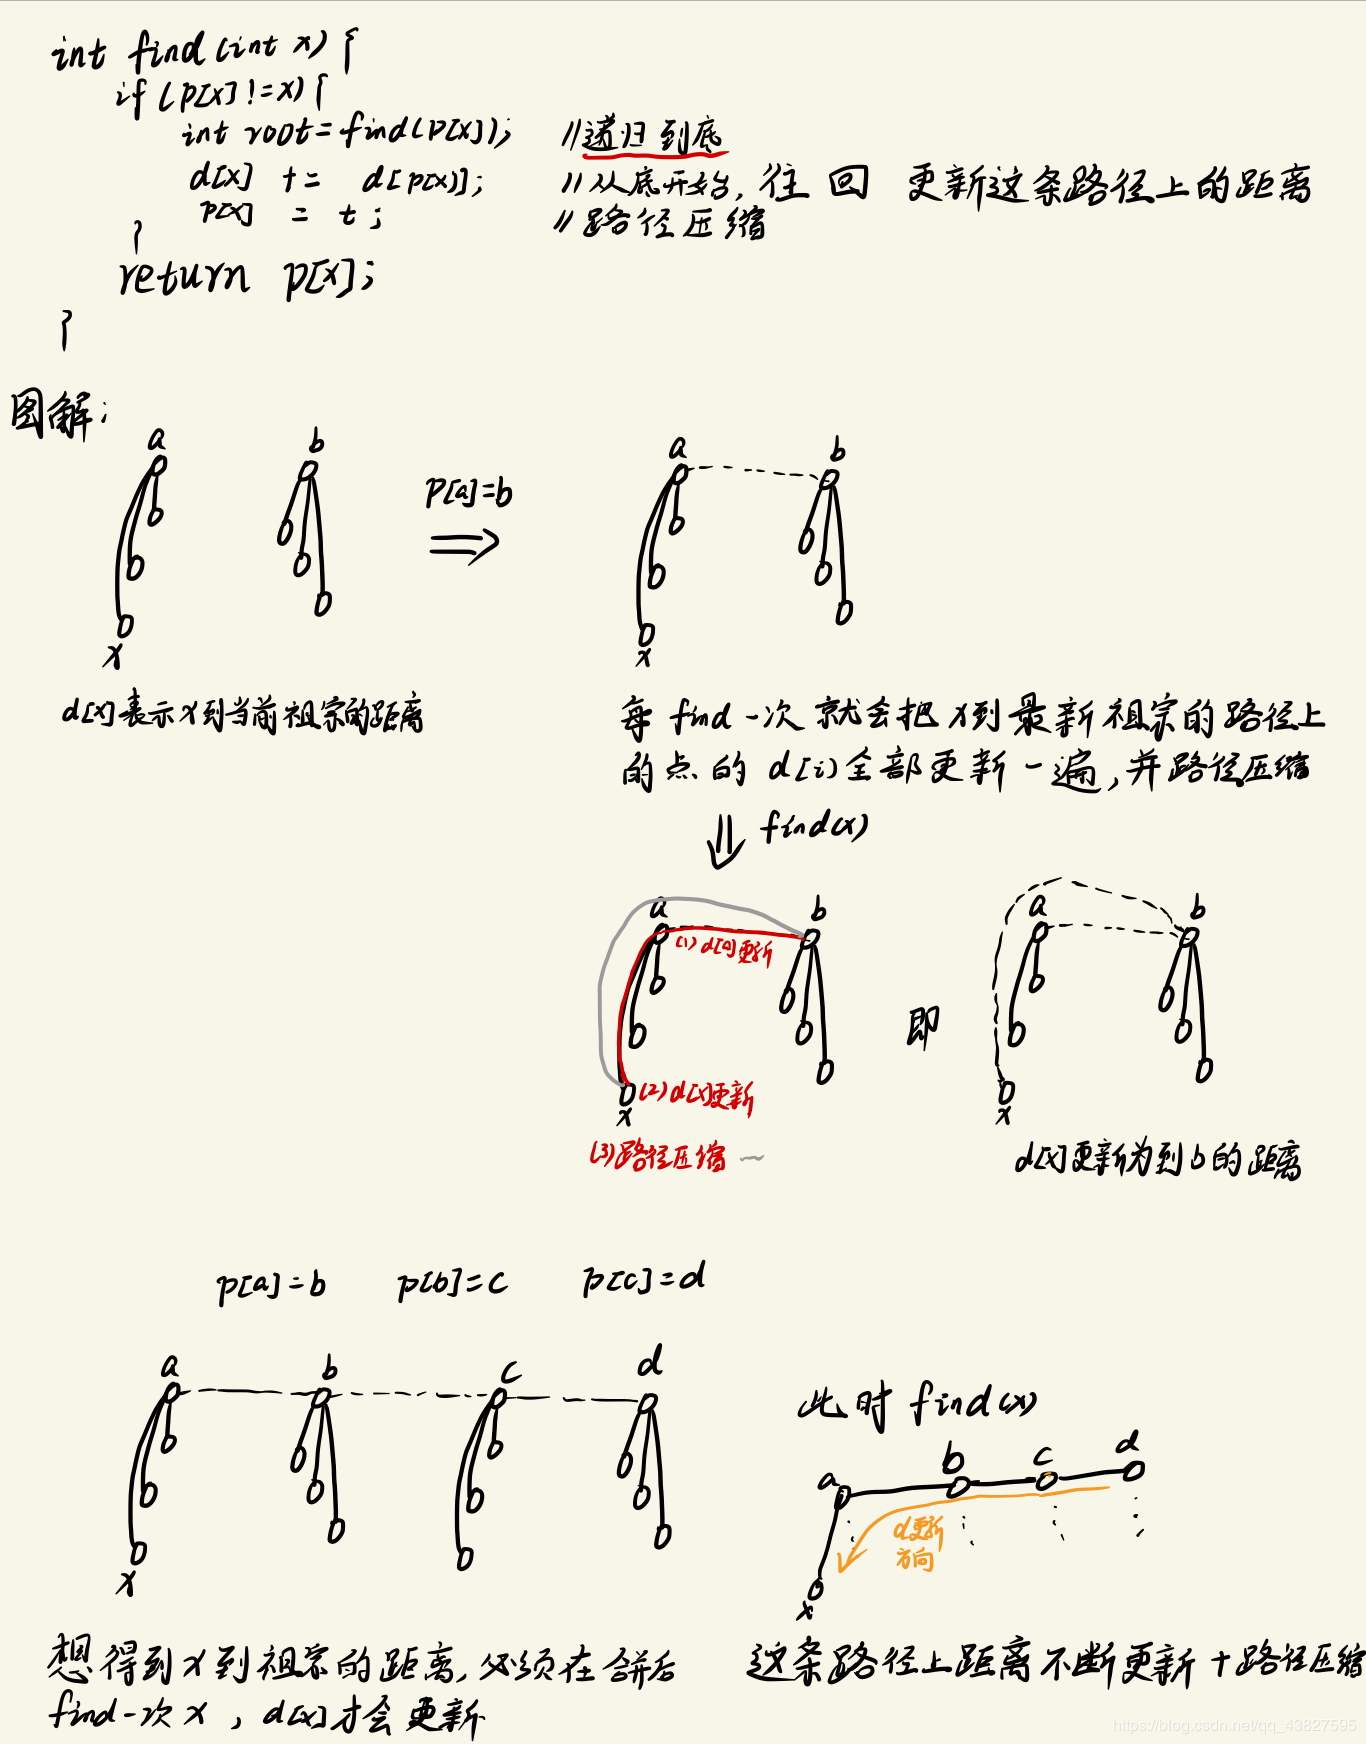 int find(int x){
if(p[x]!=x){
int root=find(p[x]); //递归到底
d[x] += d[p[x]]; //从底开始,往回 更新这条路径上的距离
p[x] = t; //路径压缩
}
return p[x];
}
图解:
a b a b
p[a]=b
x x
d[x]表示x到当前祖宗的距离
每 find 一次 就会把x到最新祖宗的路径上
的点的 d[i]全部更新一遍,并路径压缩
find(x)
a b a b
(1)d[a]更新
即
(2)d[x]更新
x x
(3)路径压缩
d[x]更新为到b的距离
p[a]=b p[b]=c p[c]=d
a b c d
x
此时 find(x)
a b c d
d更新
方向
x
想得到x到祖宗的距离,必须在合并后
find一次x,d[x]才会更新
这条路径上距离不断更新+路径压缩
https://blog.csdn.net/qq_43827595